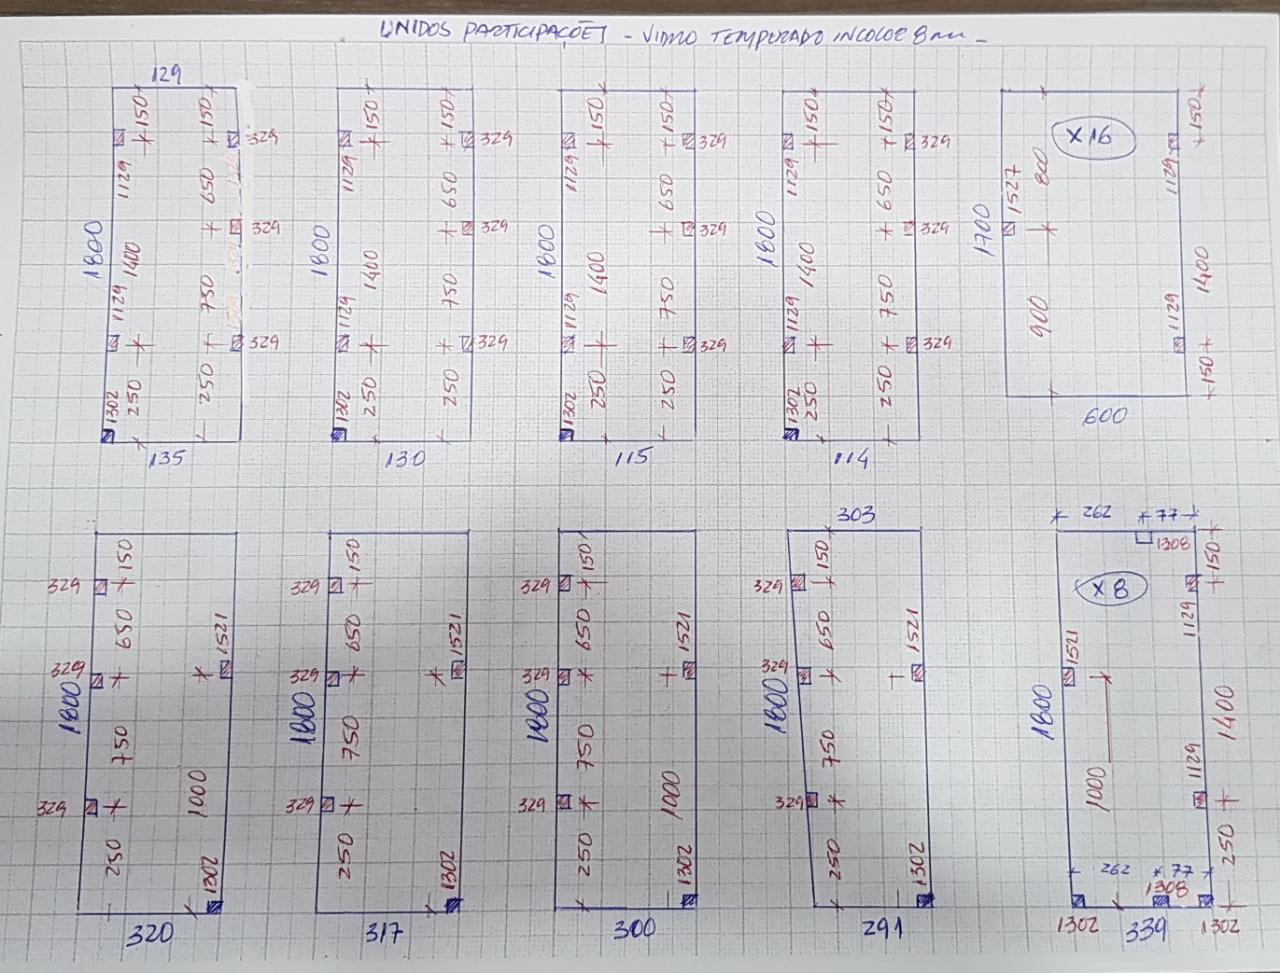 UNIDOS PARTICIPAÇÕES - VIDRO TEMPERADO INCOLOR 8mm -
129
150 150 329
1129 650
329
1800 1400
1129 750
329
1302 250 250
135
150 150 329
1129 650
329
1800 1400
1129 750
329
1302 250 250
130
150 150 329
1129 650
329
1800 1400
1129 750
329
1302 250 250
115
150 150 329
1129 650
329
1800 1400
1129 750
329
1302 250 250
114
X16 150
800 1129
1527
1700 1400
900 1129
150
600
150
329
650 1521
329
1800
750
1000
329
250 1302
320
150
329
650 1521
329
1800
750
329
250 1302
317
150
329
650 1521
329
1800
750
1000
329
250 1302
300
303
150
329
650 1521
329
1800
750
329
250 1302
291
262 77
1308 150
X8
1129
1521
1800 1400
1129
1000
250
262 77
1308
1302 339 1302